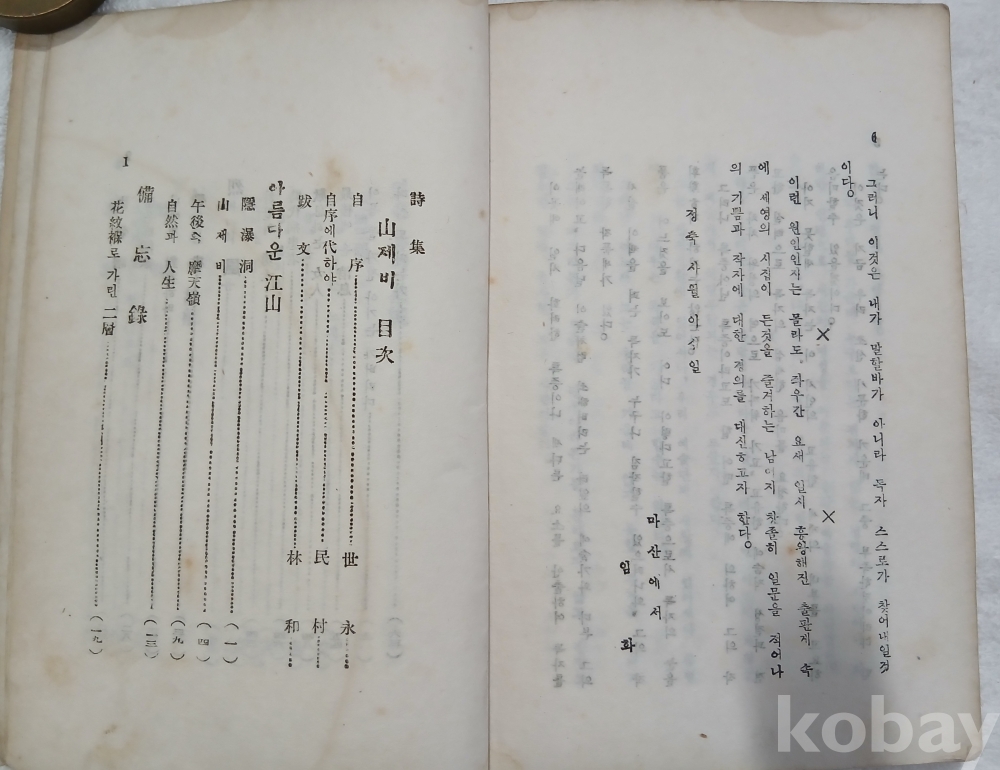 6
그러니 이것은 내가 말할바가 아니라 독자 스스로가 찾어내일것
이다。
× ×
이런 원인인지는 몰라도 좌우간 요새 일시 흥왕해진 출판게 속
에 세영의 시집이 든것을 즐거하는 남어지 창졸히 일문을 적어 나
의 기쁨과 작자에 대한 경의를 대신하고자 한다。
정축사월이십일
마산에서
임화
詩集
山제비 目次
自序………世永
自序에代하야………民村
跋文………林和
아름다운 江山
隱瀑洞………(一)
山제비………(四)
午後의 摩天嶺………(九)
自然과 人生………(一三)
備忘錄
花紋褓로 가린 二層………(一九)
1
kobay